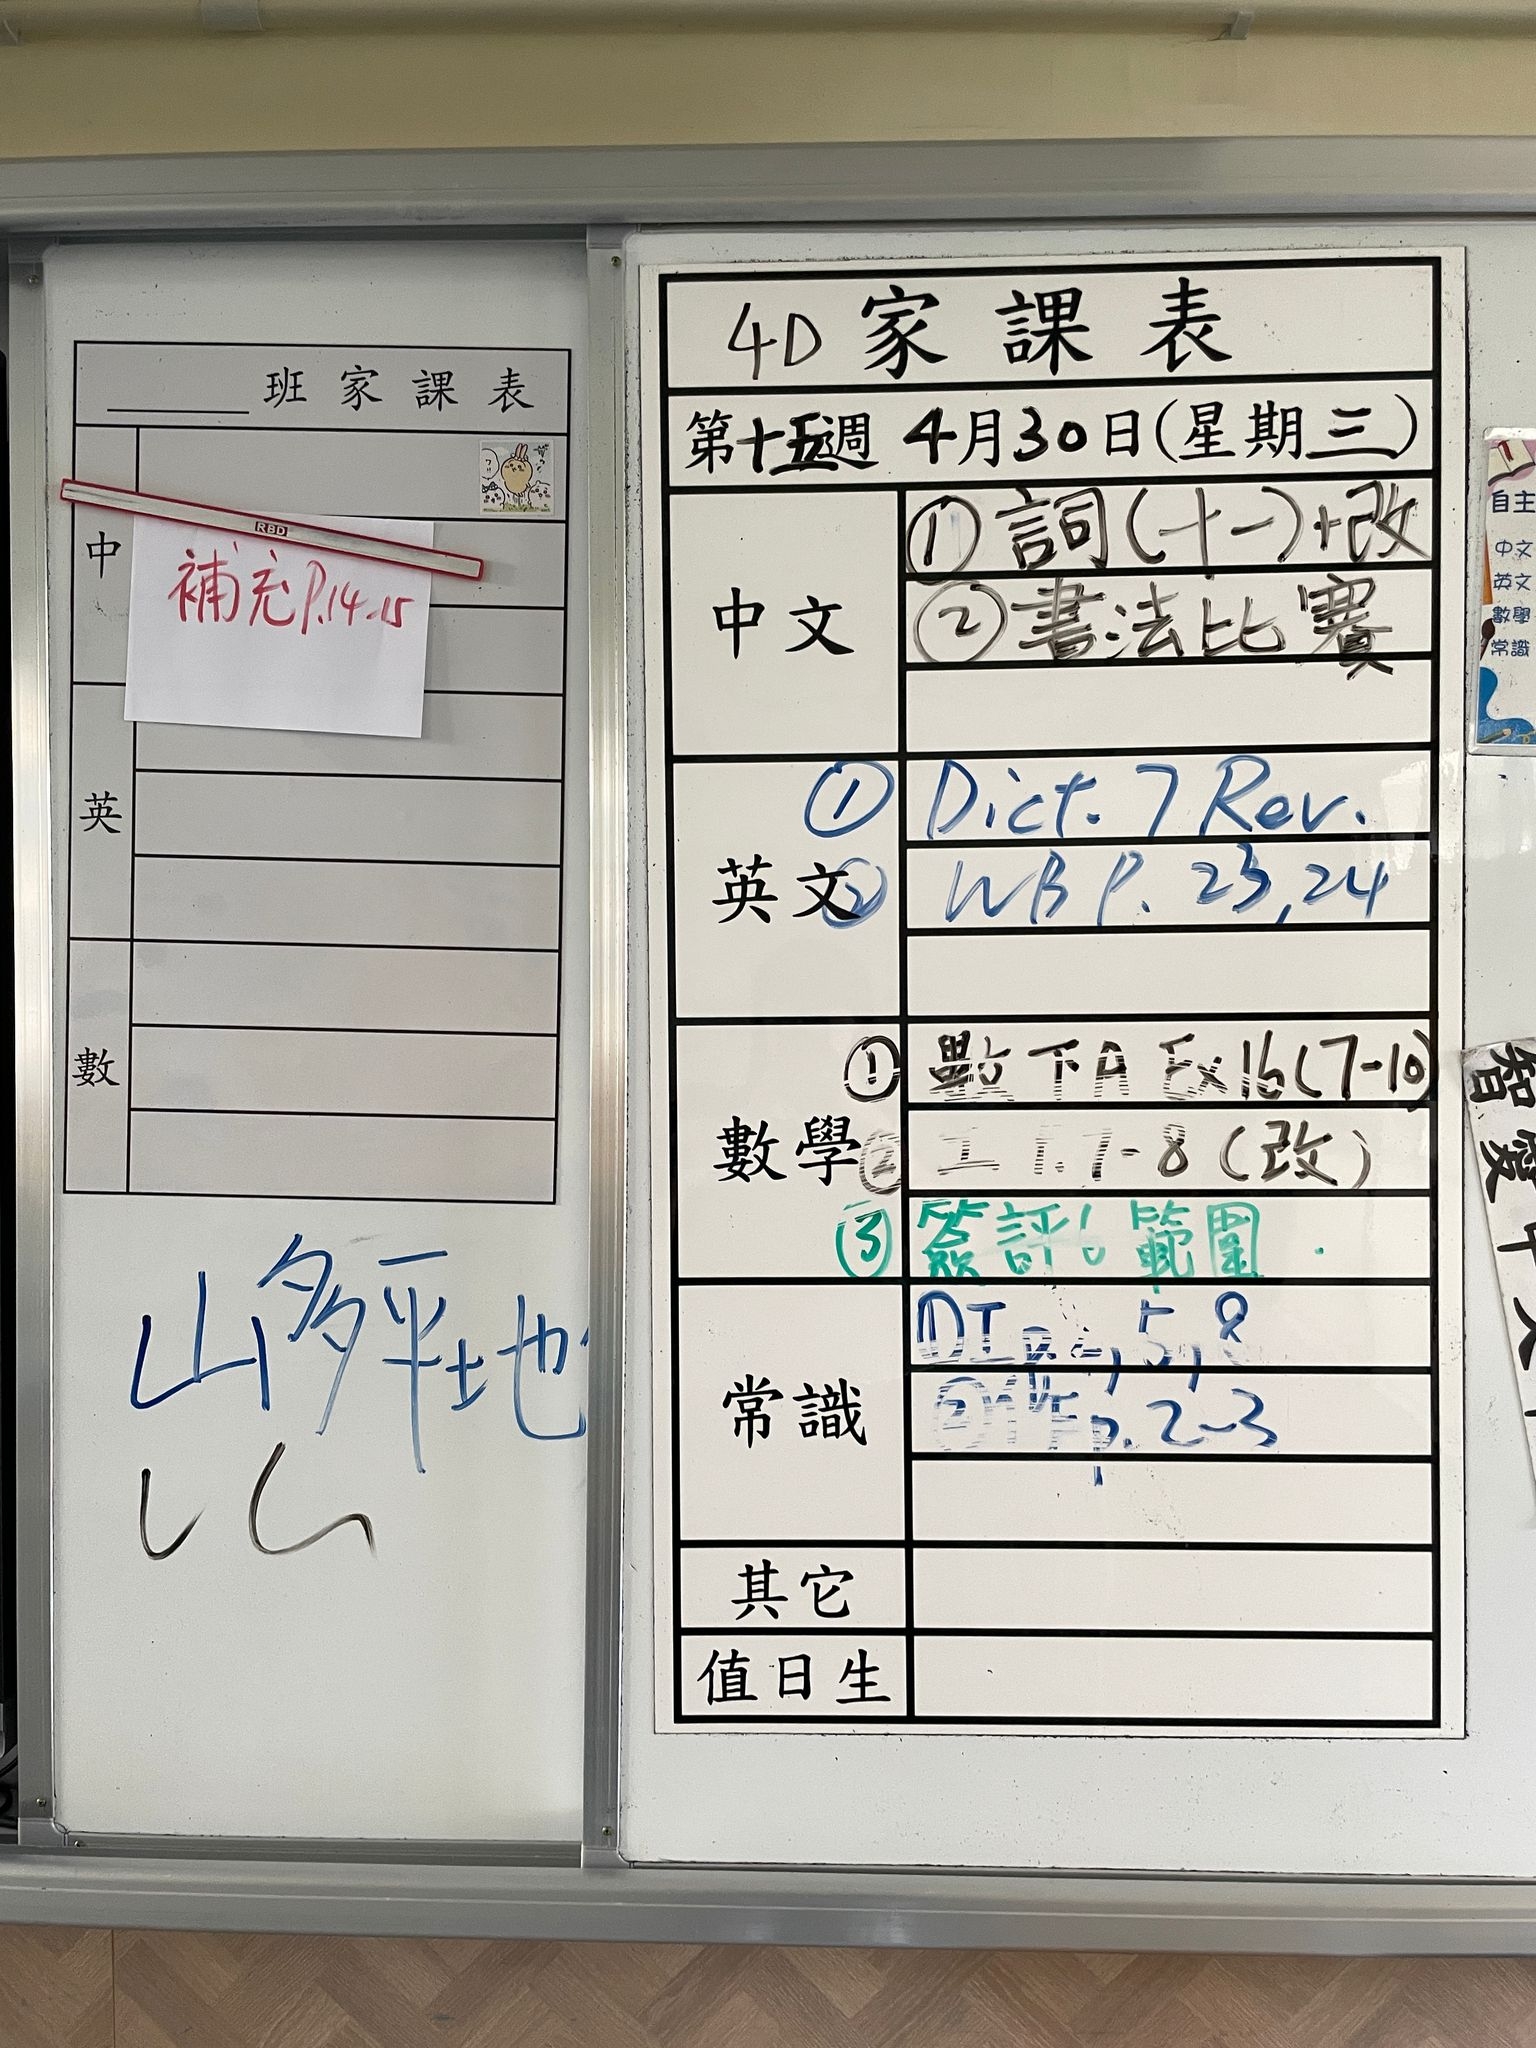 班家課表
中
補充P.14-15
英
數
山多平地
RBD
4D 家課表
第十五週 4月30日(星期三)
中文
① 詞(十一)+改
② 書法比賽
英文
① Dict. 7 Rev.
② WB P. 23,24
數學
① 數下A Ex16(7-10)
② 工 P.7-8(改)
③ 簽評6範圍.
常識
5,8
② p.2-3
其它
值日生
自主
中文
英文
數學
常識
智愛中文